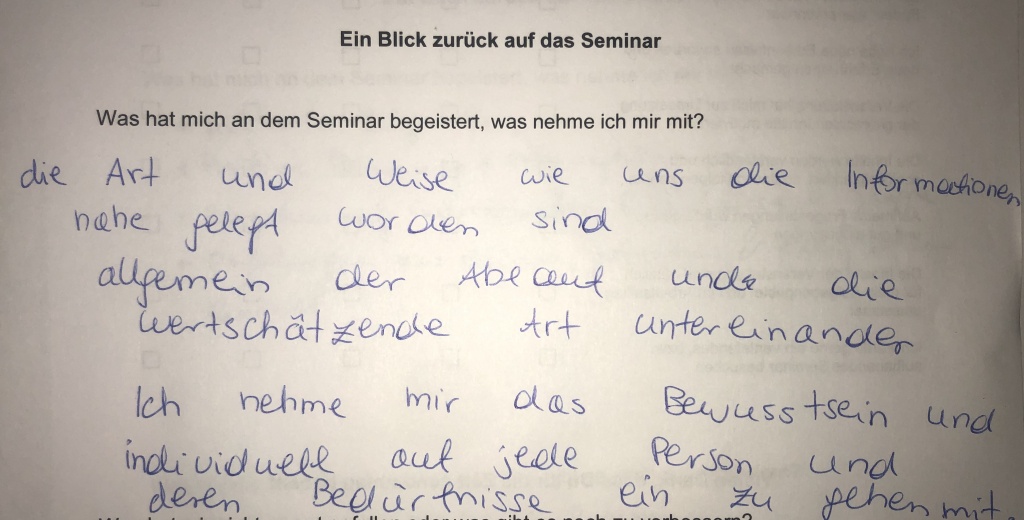 Ein Blick zurück auf das Seminar
Was hat mich an dem Seminar begeistert, was nehme ich mir mit?
die Art und Weise wie uns die Informationen
nahe gelegt worden sind
allgemein der Ablauf und die
wertschätzende Art untereinander
Ich nehme mir das Bewusstsein und
individuell auf jede Person und
deren Bedürfnisse ein zu gehen mit.